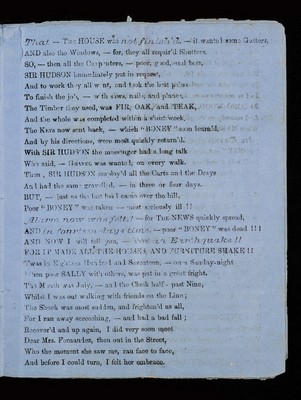 That — The HOUSE was not finish'd, — it wanted some Gutters,
AND also the Windows, — for, they all requir'd Shutters.
SO, — then all the Carpenters, — poor, good, and best,
SIR HUDSON immediately put in request,
And to work they all went, and took the best pains
To finish the job, — with saws, nails, and planes,
The Timber they used, was FIR, OAK, and TEAK,
And the whole was completed within a short week,
The Keys now sent back, — which "BONEY" soon learn'd,
And by his directions, were most quickly return'd.
With SIR HUDSON the messenger had a long talk
Who said, — Gravel was wanted, on every walk.
Then, SIR HUDSON employ'd all the Carts and the Drays
And had the same gravell'd, — in three or four days.
BUT, — just as the last load came over the hill,
Poor "BONEY" was taken — most seriously ill !!
Alarm now was felt! — for the NEWS quickly spread,
AND in fourteen days time, — poor "BONEY" was dead !! !
AND NOW I will tell you, — of an Earthquake!!
FOR IT MADE ALL THE HOUSES AND FURNITURE SHAKE !!
'Twas in Eighteen Hundred and Seventeen, — on a Sunday-night
When poor SALLY with others, was put in a great fright.
The Month was July, — and the Clock half-past Nine,
Whilst I was out walking with friends on the Line;
The Shock was most sudden, and frighten'd us all,
For I ran away screeching, — and had a bad fall;
Recover'd and up again, I did very soon meet
Dear Mrs. Fernandez, then out in the Street,
Who the moment she saw me, ran face to face,
And before I could turn, I felt her embrace.